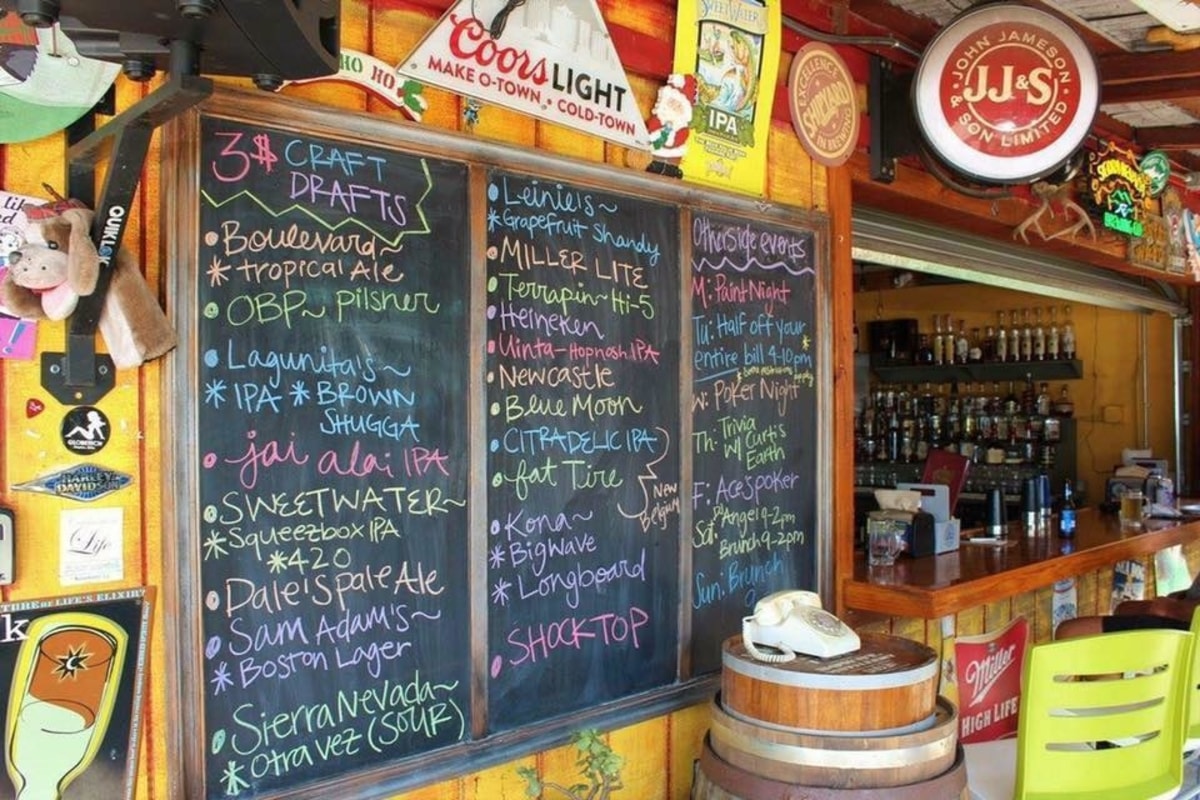 3$ CRAFT
DRAFTS
• Boulevard~
* tropical Ale
• OBP~ pilsner
• Lagunita's~
* IPA * BROWN
SHUGGA
• jai alai IPA
• SWEETWATER~
* Squeezbox IPA
* 420
• Dale's pale Ale
• Sam Adam's~
* Boston Lager
• Sierra Nevada~
* Otra vez (SOUR)
• Leinie's~
* Grapefruit Shandy
• MILLER LITE
• Terrapin~ Hi-5
• Heineken
• Uinta~ Hopnosh IPA
• Newcastle
• Blue Moon
• CITRADELIC IPA
• fat Tire
New
Belgium
• Kona~
* Big Wave
* Longboard
• SHOCKTOP
Otherside events
M: Paint Night
Tu: Half off your
entire bill 4-10pm
* Some restrictions apply
W: Poker Night
Th: Trivia
W/ Curtis
Earth
F: Ace's poker
Sat: DJ Angel 9-2pm
Brunch 9-2pm
Sun: Brunch
HO HO
Coors LIGHT
MAKE O-TOWN • COLD-TOWN
SWEETWATER
IPA
EXCELLENCE
SHIPYARD
IN BREWING
JOHN JAMESON
JJ&S
& SON LIMITED
QUIKLOK
GLOBEBICH
HARLEY-
DAVIDSON
Life
TURE OF LIFE'S ELIXIR
k
Miller
HIGH LIFE